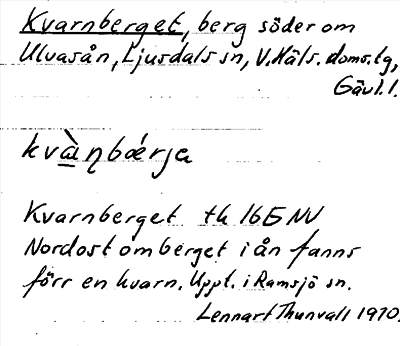 Kvarnberget, berg söder om
Ulvasån, Ljusdals sn, V. Häls. doms. tg,
Gävl. l.
kvà̱ꞃbǿrja
Kvarnberget tk 16E NV
Nordost om berget i ån fanns
förr en kvarn. Uppt. i Ramsjö sn.
Lennart Thunvall 1970.